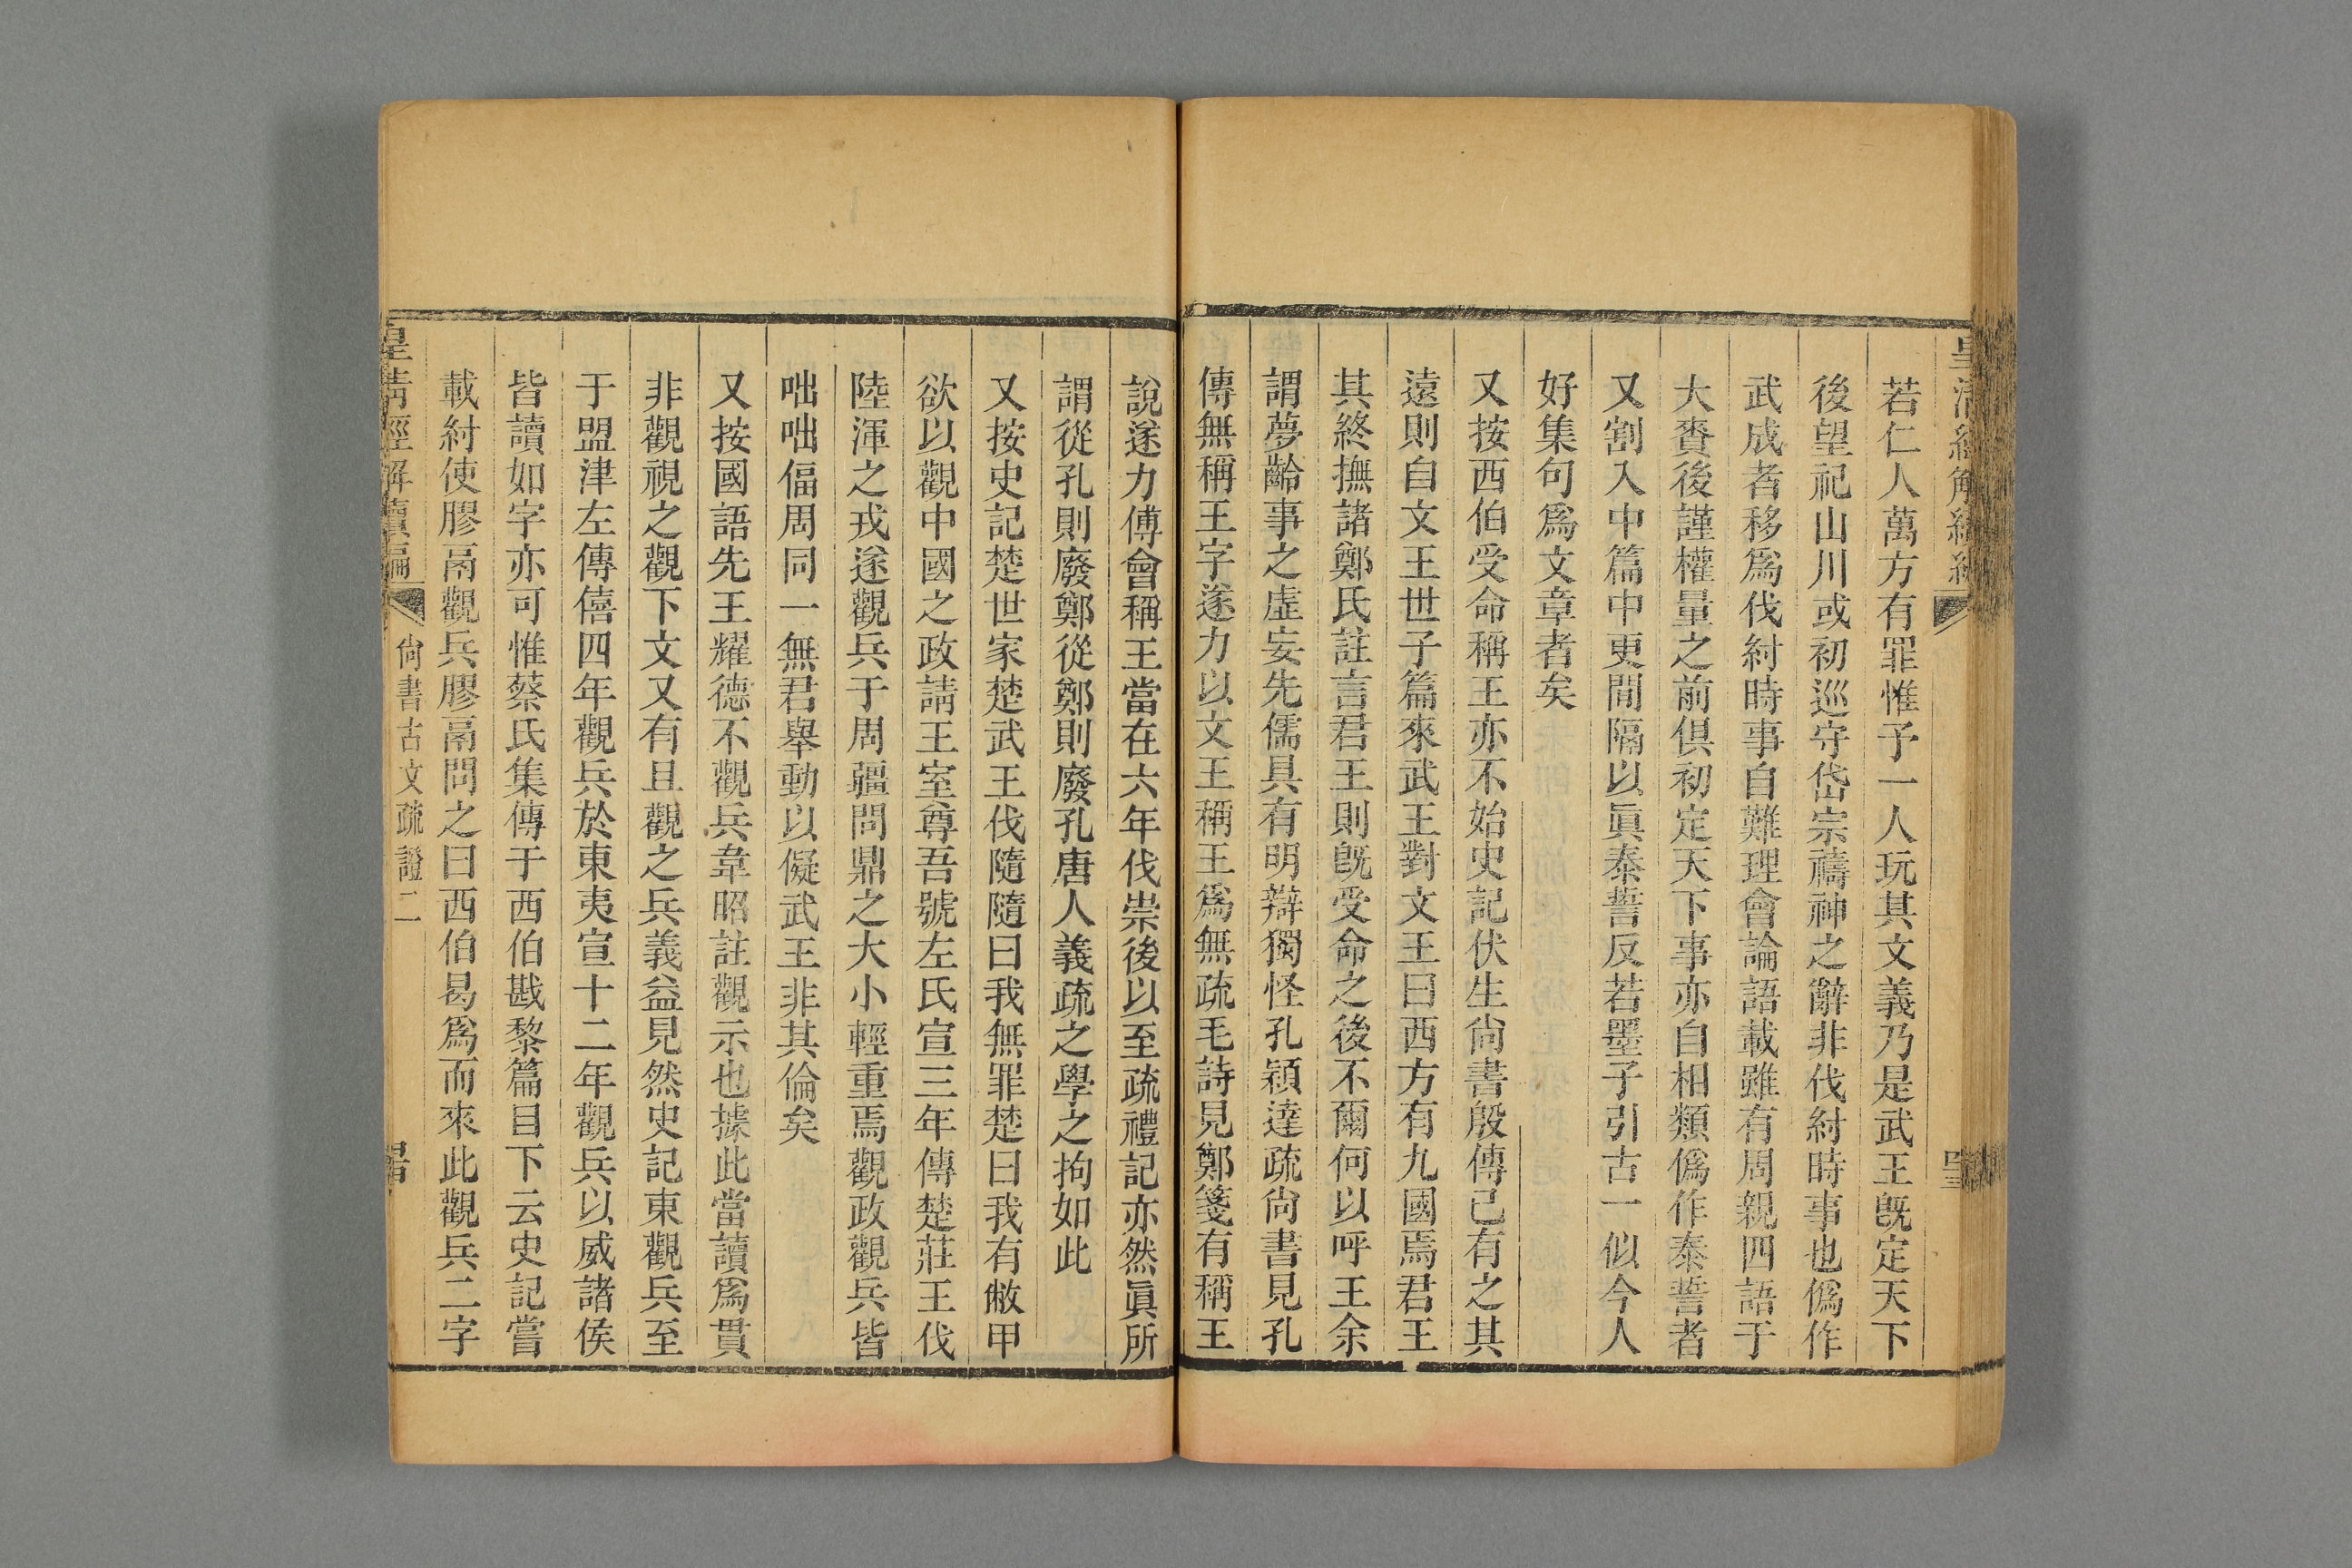 若仁人萬方有罪惟予一人玩其文義乃是武王旣定天下
後望祀山川或初巡守岱宗禱神之辭非伐紂時事也僞作
武成者移爲伐紂時事自難理會論語載雖有周親四語于
大賚後謹權量之前俱初定天下事亦自相類僞作泰誓者
又割入中篇中更閒隔以眞泰誓反若墨子引古一似今人
好集句爲文章者矣
又按西伯受命稱王亦不始史記伏生尙書殷傳已有之其
遠則自文王世子篇來武王對文王曰西方有九國焉君王
其終撫諸鄭氏註言君王則旣受命之後不爾何以呼王余
謂夢齡事之虛妄先儒具有明辯獨怪孔穎達疏尙書見孔
傳無稱王字遂力以文王稱王爲無疏毛詩見鄭箋有稱王
說遂力傅會稱王當在六年伐崇後以至疏禮記亦然眞所
謂從孔則廢鄭從鄭則廢孔唐人義疏之學之拘如此
又按史記楚世家楚武王伐隨隨曰我無罪楚曰我有敝甲
欲以觀中國之政請王室尊吾號左氏宣三年傳楚莊王伐
陸渾之戎遂觀兵于周疆問鼎之大小輕重焉觀政觀兵皆
咄咄偪周同一無君舉動以儗武王非其倫矣
又按國語先王耀德不觀兵韋昭註觀示也據此當讀爲貫
非觀視之觀下文又有且觀之兵義益見然史記東觀兵至
于盟津左傳僖四年觀兵於東夷宣十二年觀兵以威諸侯
皆讀如字亦可惟蔡氏集傳于西伯戡黎篇目下云史記嘗
載紂使膠鬲觀兵膠鬲問之曰西伯曷爲而來此觀兵二字
皇淸經解續編
尙書古文疏證二